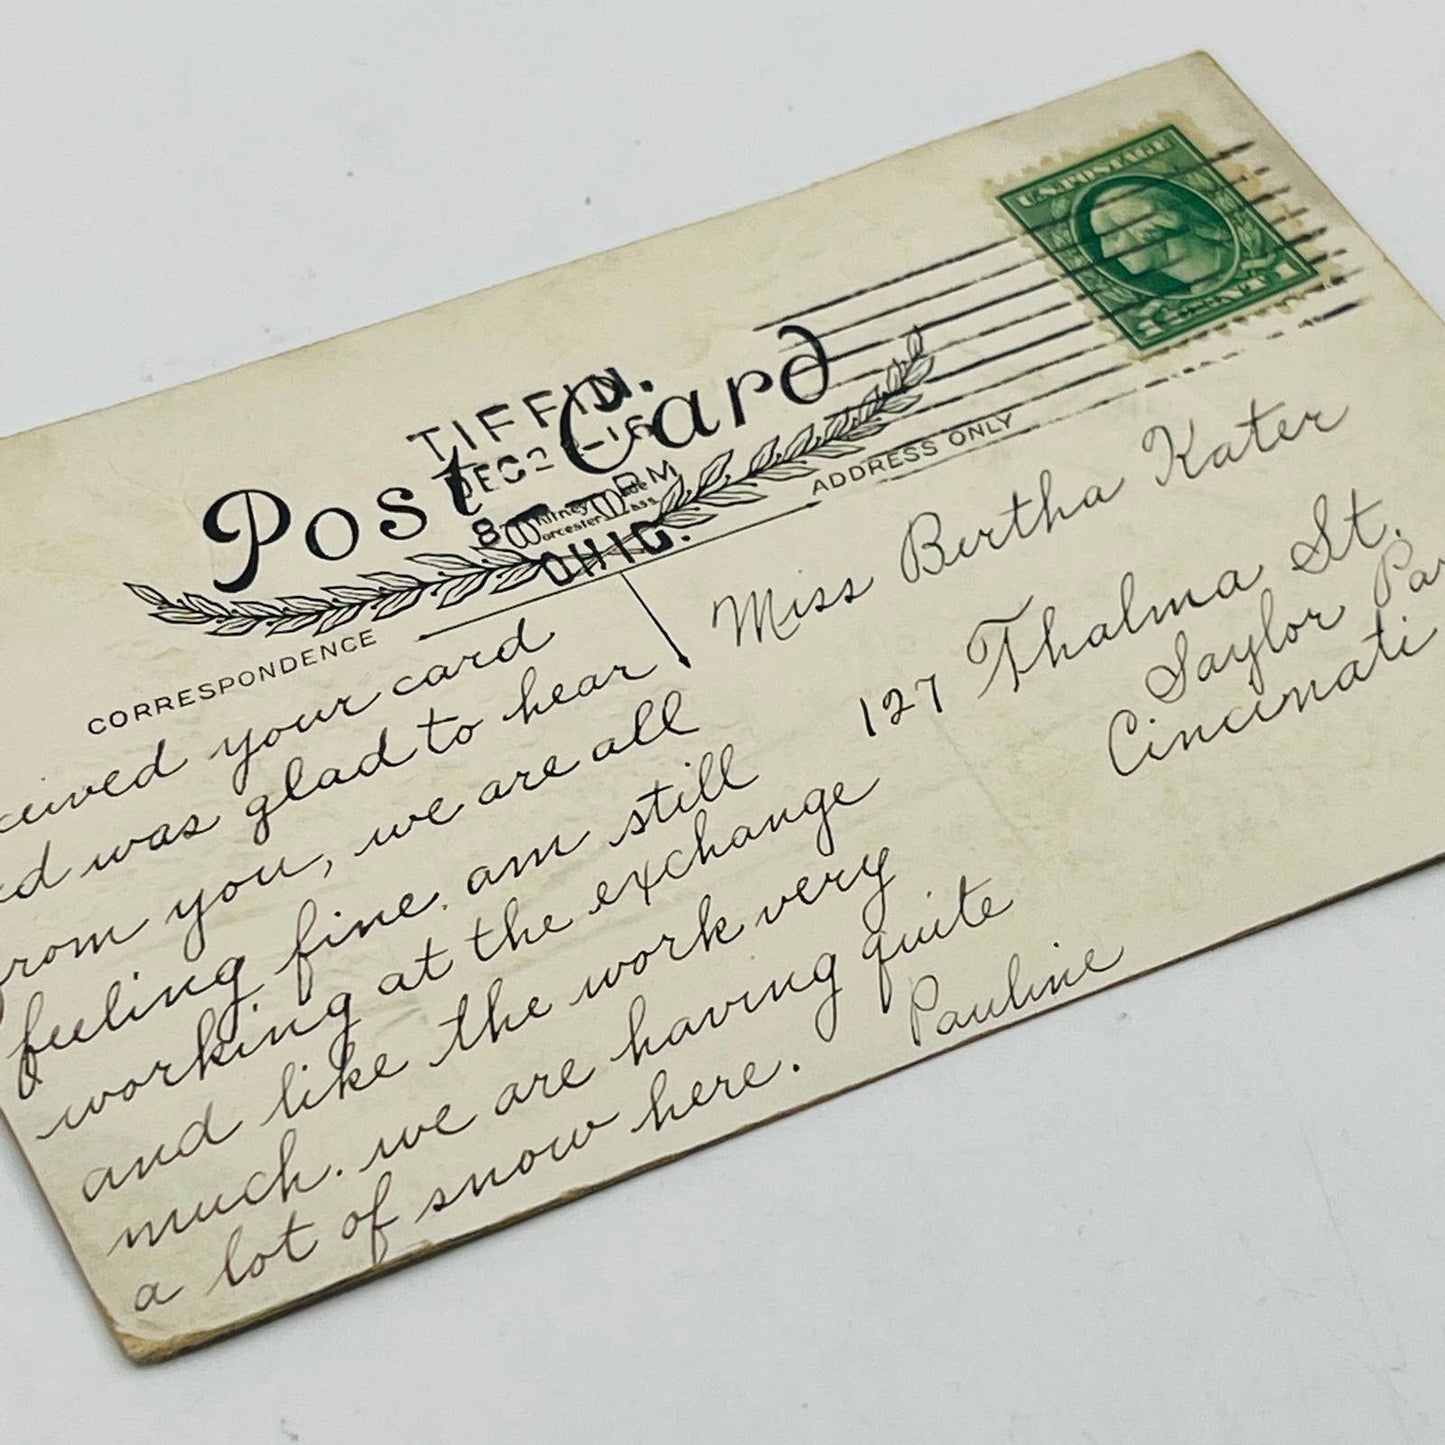 U.S. POSTAGE
TIFFIN.
8 PM
OHIO.
Post Card
Whitney Made
Worcester Mass
CORRESPONDENCE
ADDRESS ONLY
ceived your card
ed was glad to hear
from you, we are all
feeling fine. am still
working at the exchange
and like the work very
much. we are having quite
a lot of snow here.
Pauline
Miss Bertha Kater
127 Thalma St.
Saylor Par
Cincinnati